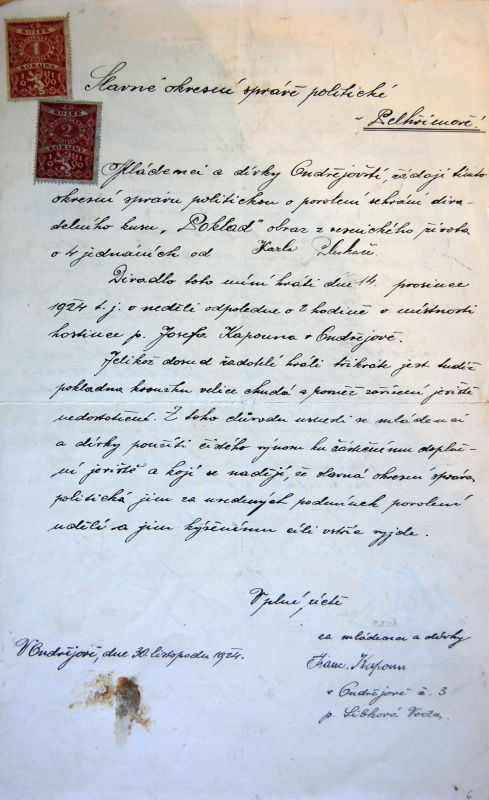 ČS
KOLEK
1
KORUNA
ČS
KOLEK
2
KORUNY
Slavné okresní správě politické
v Pelhřimově!
Mládenci a dívky Ondřejovští, žádají tímto
okresní správu politickou o povolení sehrání diva-
delního kusu „Poklad" obraz z vesnického života
o 4 jednáních od Karla
Divadlo toto míní hráti dne 14. prosince
1924 t. j. v neděli odpoledne o 2 hodině v místnosti
hostince p. Josefa Kapouna v Ondřejově.
Jelikož dosud žadatelé hráli třikrát jest tudíž
pokladna kroužku velice chudá a poměr zařízení jeviště
nedostatečné. Z toho důvodu usnesli se mládenci
a dívky použíti čistého výnosu ku částečnému doplně-
ní jeviště a kojí se nadějí, že slavná okresní správa
politická jim za uvedených podmínek povolení
udělí a jim kýženému cíli vstříc vyjde.
V plné úctě
za mládence a dívky
V Ondřejově, dne 30. listopadu 1924.
Fran. Kapoun
v Ondřejově č. 3
p. Libková Voda.
6